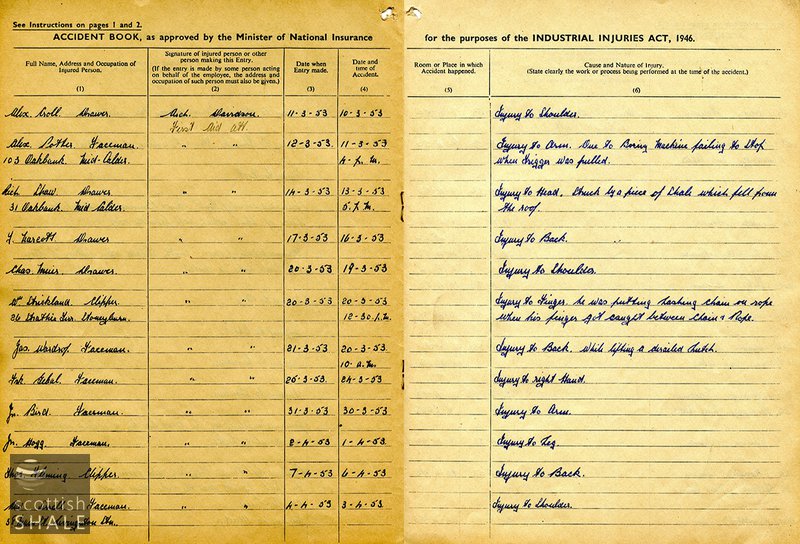 See Instructions on pages 1 and 2.
ACCIDENT BOOK, as approved by the Minister of National Insurance for the purposes of the INDUSTRIAL INJURIES ACT, 1946.
Full Name, Address and Occupation of Injured Person. (1)
Signature of injured person or other person making this Entry. (If the entry is made by some person acting on behalf of the employee, the address and occupation of such person must also be given.) (2)
Date when Entry made. (3)
Date and time of Accident. (4)
Room or Place in which Accident happened. (5)
Cause and Nature of Injury. (State clearly the work or process being performed at the time of the accident.) (6)
Alex. Croll. Drawer. Rich. Davidson. 11-3-53 10-3-53 Injury to Shoulder.
First Aid Att.
Alex. Faceman. " " 12-3-53 11-3-53 Injury to Arm. Due to Boring Machine failing to Stop
103 Oakbank. Mid-Calder. 4-p.m. when Trigger was pulled.
Rich. Shaw Drawer " " 14-3-53 13-3-53 Injury to Head. Struck by a piece of Shale which fell from
31 Oakbank. Mid Calder. 5.p.m. the roof.
Drawer " " 17-3-53 16-3-53 Injury to Back.
Chas. Muir. Drawer. " " 20-3-53 19-3-53 Injury to Shoulder.
Wm Strickland. Clipper " " 20-3-53 20-3-53 Injury to Finger. he was putting Lashing chain on rope
26 Stoneyburn. 12-30.p.m. when his finger got caught between Chain & Rope.
Jas. Wardrop. Faceman. " " 21-3-53 20-3-53 Injury to Back. While lifting a derailed Hutch.
10 a.m.
Faceman. " " 25-3-53 24-3-53 Injury to right Hand.
Jn. Bird. Faceman. " " 31-3-53 30-3-53 Injury to Arm.
Jn. Hogg Faceman. " " 2-4-53 1-4-53 Injury to Leg.
Thos. Fleming Clipper. " " 7-4-53 6-4-53 Injury to Back.
Faceman. " " 4-4-53 3-4-53 Injury to Shoulder.
Scottish
SHALE